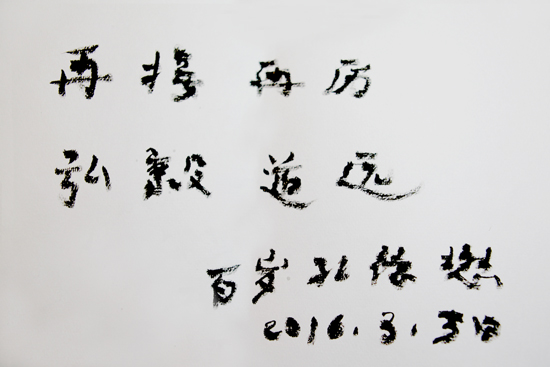 再接再厉
弘毅道远
百岁孔德懋
2016.3.日